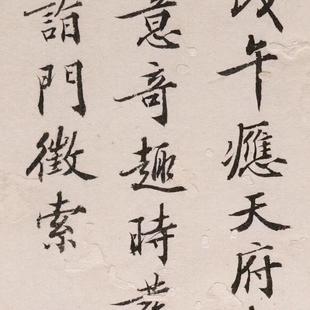 午應天府
意奇趣時
詣門徵索